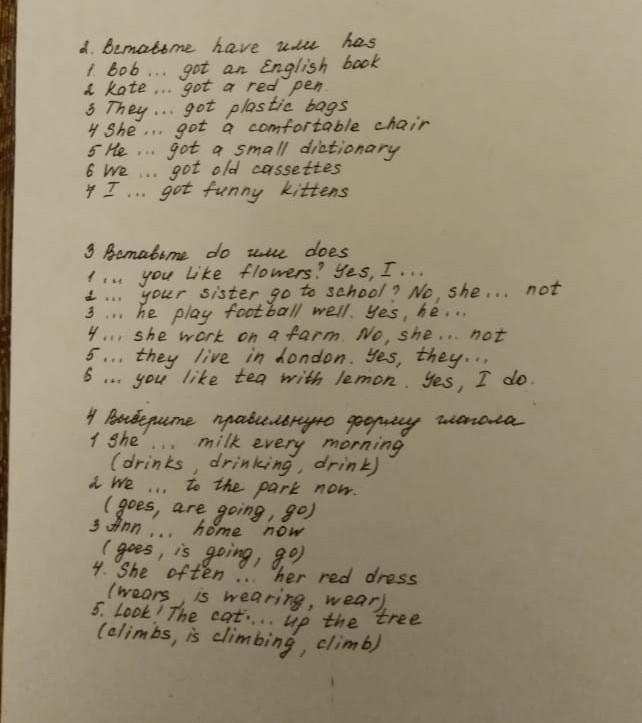 2. Вставьте have или has
1. Bob ... got an English book
2 Kate ... got a red pen.
3 They ... got plastic bags
4 She ... got a comfortable chair
5 He ... got a small dictionary
6 We ... got old cassettes
7 I ... got funny kittens
3 Вставьте do или does
1 ... you like flowers? Yes, I ...
2 ... your sister go to school? No, she ... not
3 ... he play football well. Yes, he ...
4 ... she work on a farm. No, she ... not
5 ... they live in London. Yes, they ...
6 ... you like tea with lemon. Yes, I do.
4 Выберите правильную форму глагола
1 She ... milk every morning
(drinks, drinking, drink)
2 We ... to the park now.
(goes, are going, go)
3 Ann ... home now
(goes, is going, go)
4. She often ... her red dress
(wears, is wearing, wear)
5. Look! The cat ... up the tree
(climbs, is climbing, climb)